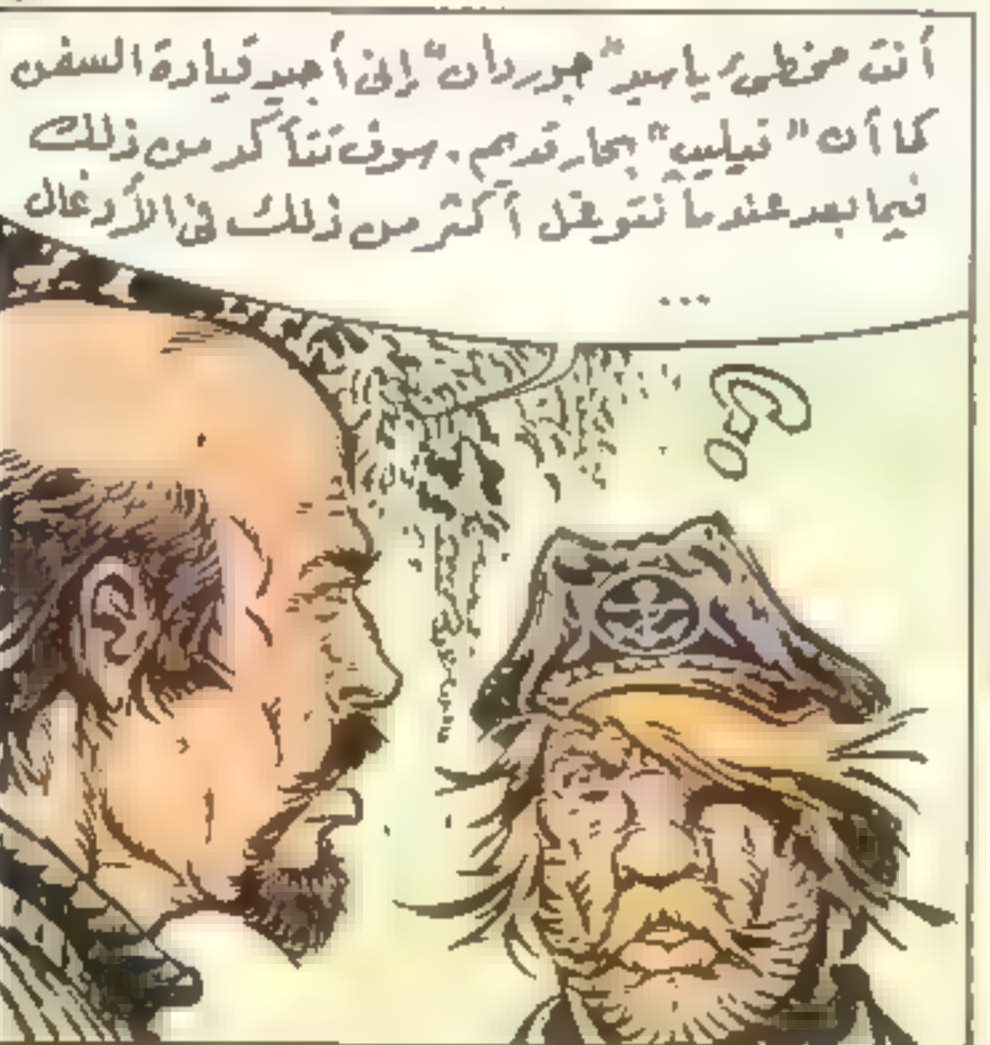 أنت مخطئ ياسيد "جوردان" إنى أجيد قيادة السفن
كما أن "فيليب" بحار قديم. سوف تتأكد من ذلك
فيما بعد عندما نتوغل أكثر من ذلك فى الأدغال
...
؟